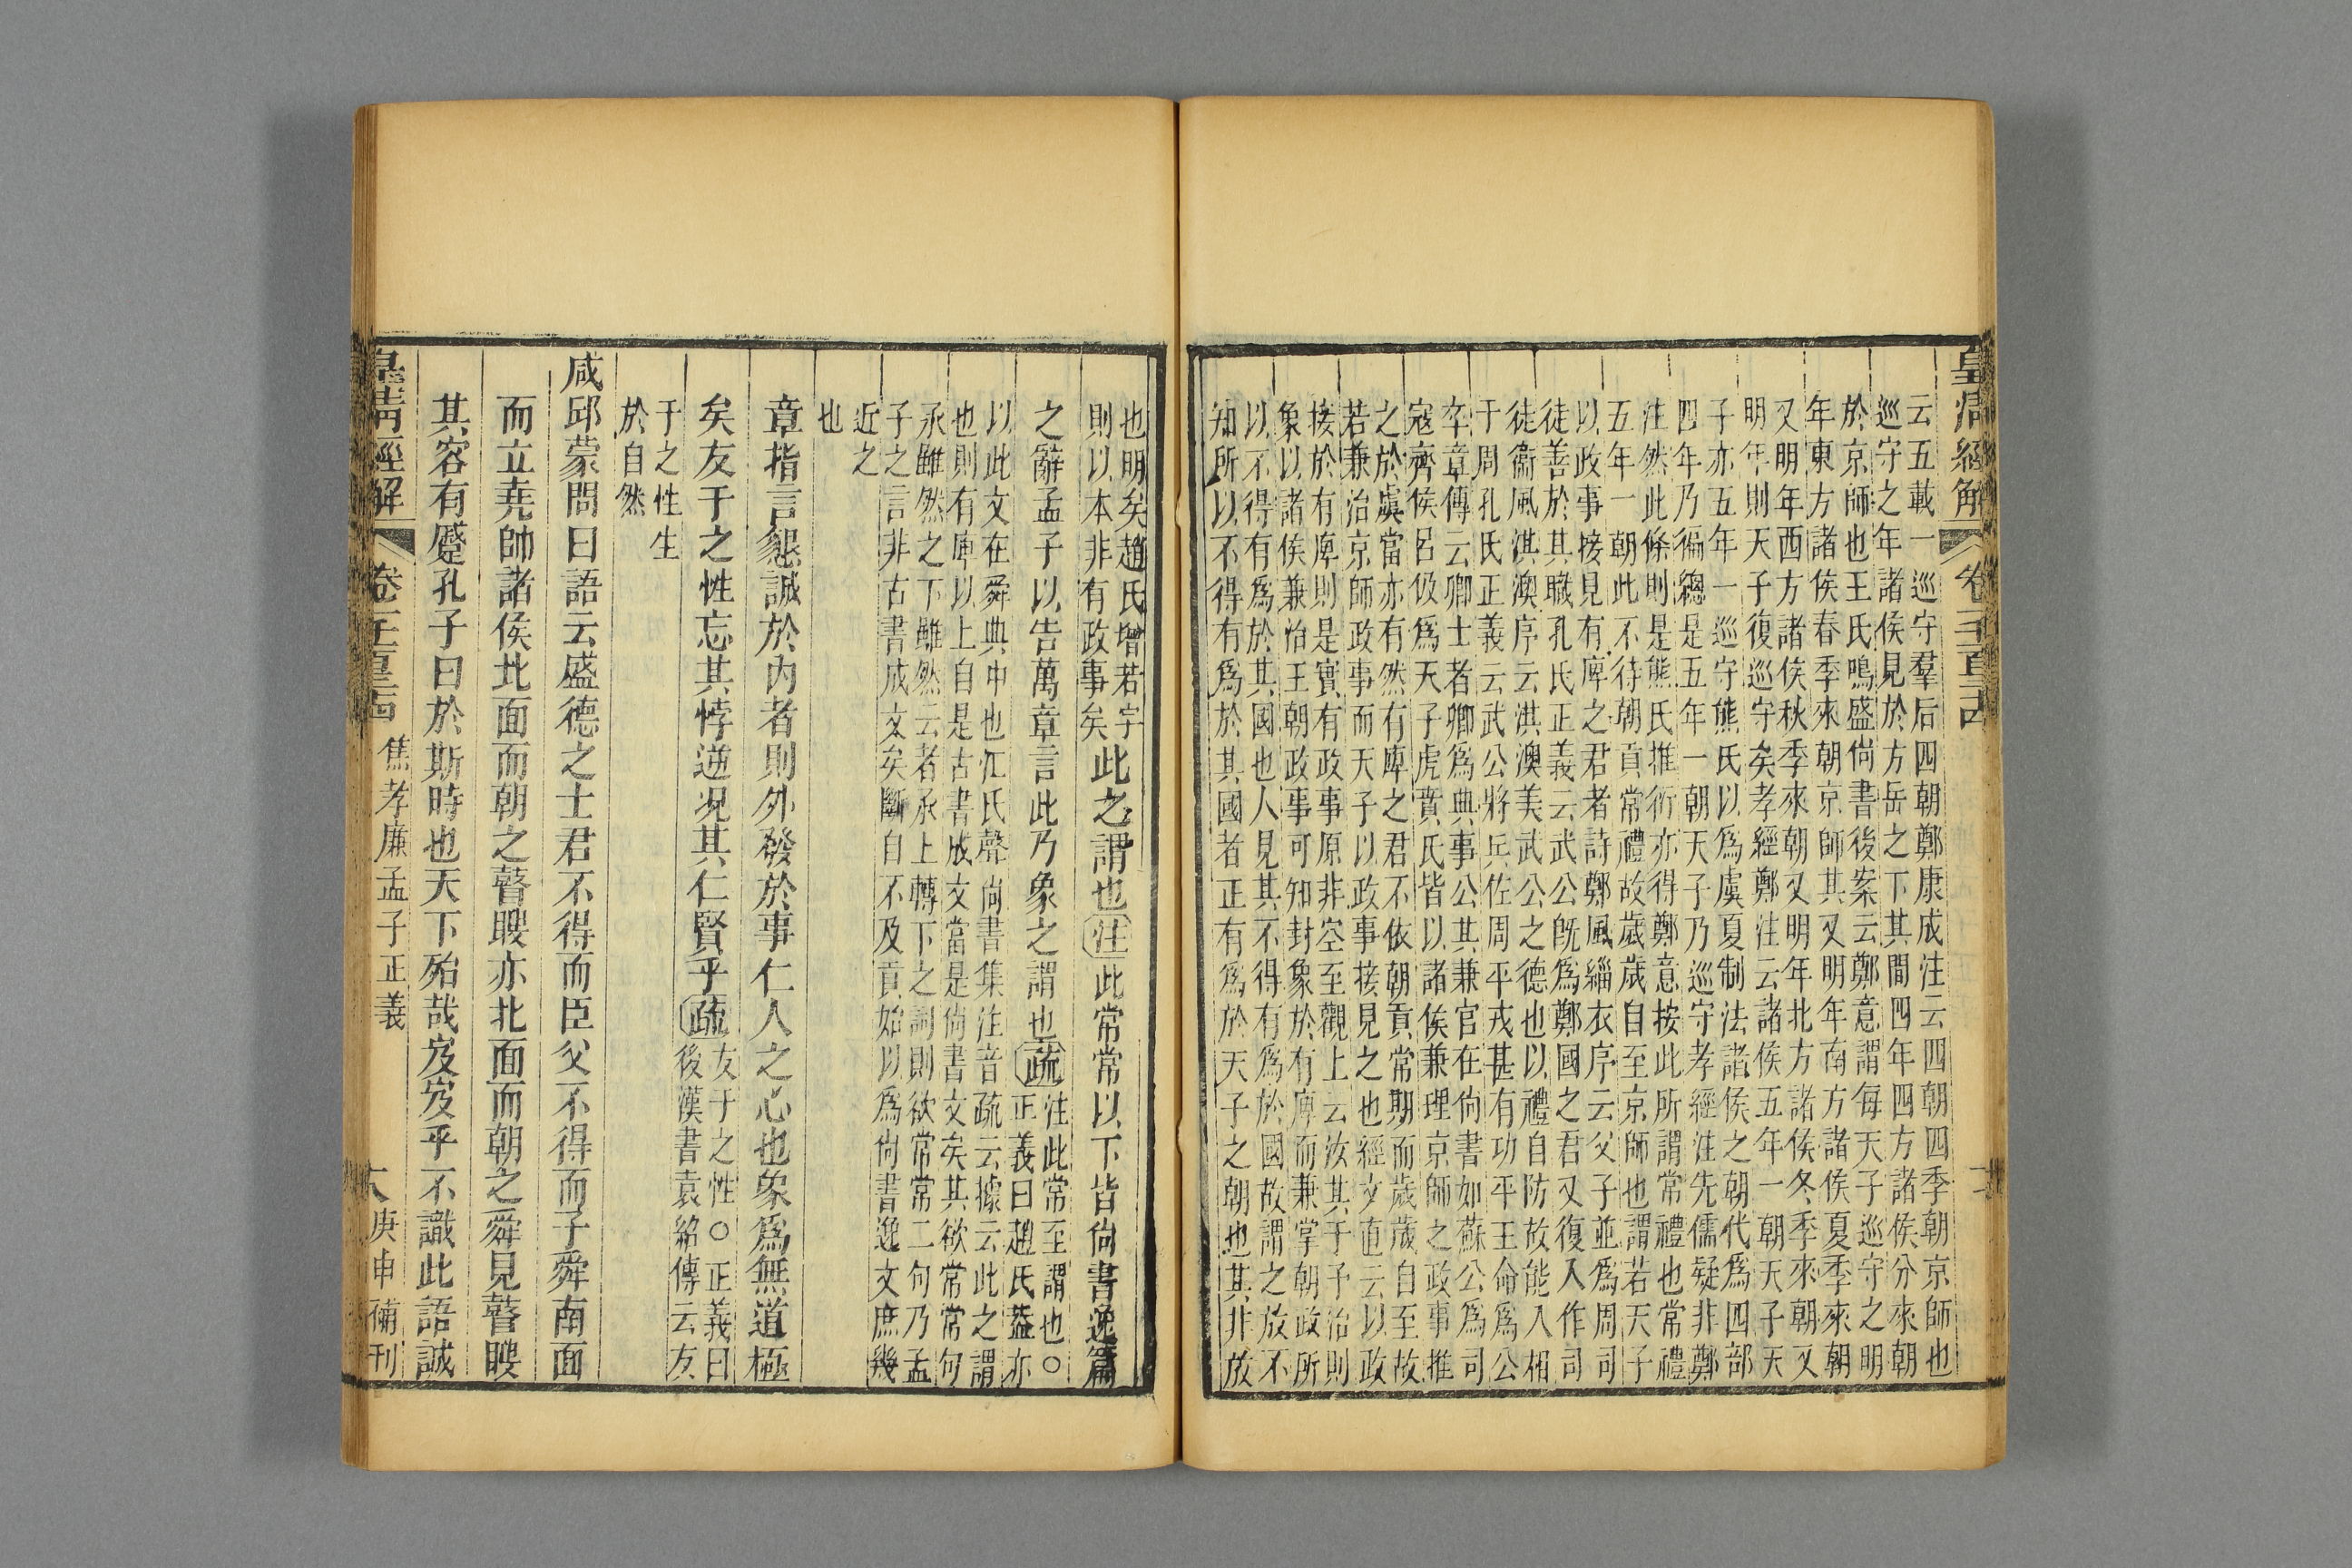 皇清經解
卷一千一百三十四
云五載一巡守羣后四朝鄭康成注云四朝四季朝京師也
巡守之年諸侯見於方岳之下其間四年四方諸侯分來朝
於京師也王氏鳴盛尙書後案云鄭意謂每天子巡守之明
年東方諸侯春季來朝京師其又明年南方諸侯夏季來朝
又明年西方諸侯秋季來朝又明年北方諸侯冬季來朝又
明年則天子復巡守矣孝經鄭注云諸侯五年一朝天子天
子亦五年一巡守熊氏以爲虞夏制法諸侯之朝代爲四部
四年乃徧總是五年一朝天子乃巡守孝經注先儒疑非鄭
注然此條則是熊氏推衍亦得鄭意按此所謂常禮也常禮
五年一朝此不待朝貢常禮故歲歲自至京師也謂若天子
以政事接見有庳之君者詩鄭風緇衣序云父子並爲周司
徒善於其職孔氏正義云武公旣爲鄭國之君又復入作司
徒衞風淇澳序云淇澳美武公之德也以禮自防故能入相
于周孔氏正義云武公將兵佐周平戎甚有功平王命爲公
卒章傳云卿士者卿爲典事公其兼官在尙書如蘇公爲司
寇齊侯呂伋爲天子虎賁氏皆以諸侯兼理京師之政事推
之於虞當亦有然有庳之君不依朝貢常期而歲歲自至故
若兼治京師政事而天子以政事接見之也經文直云以政
接於有庳則是實有政事原非空至觀上云汝其于予治則
象以諸侯兼治王朝政事可知封象於有庳而兼掌朝政所
以不得有爲於其國也人見其不得有爲於國故謂之放不
知所以不得有爲於其國者正有爲於天子之朝也其非放
也明矣趙氏增若字
則以本非有政事矣
此之謂也注此常常以下皆尙書逸篇
之辭孟子以告萬章言此乃象之謂也疏
注此常至謂也○
正義曰趙氏蓋亦
以此文在舜典中也江氏聲尙書集注音疏云據云此之謂
也則有庳以上自是古書成文當是尙書文矣其欲常常句
承雖然之下雖然云者承上轉下之詞則欲常常二句乃孟
子之言非古書成文矣斷自不及貢始以爲尙書逸文庶幾
近之
也
章指言懇誠於內者則外發於事仁人之心也象爲無道極
矣友于之性忘其悖逆况其仁賢乎疏
友于之性○正義曰
後漢書袁紹傳云友
于之性生
於自然
咸邱蒙問曰語云盛德之士君不得而臣父不得而子舜南面
而立堯帥諸侯北面而朝之瞽瞍亦北面而朝之舜見瞽瞍
其容有蹙孔子曰於斯時也天下殆哉岌岌乎不識此語誠
皇清經解
卷一千一百三十四
焦孝廉孟子正義
庚申補刊